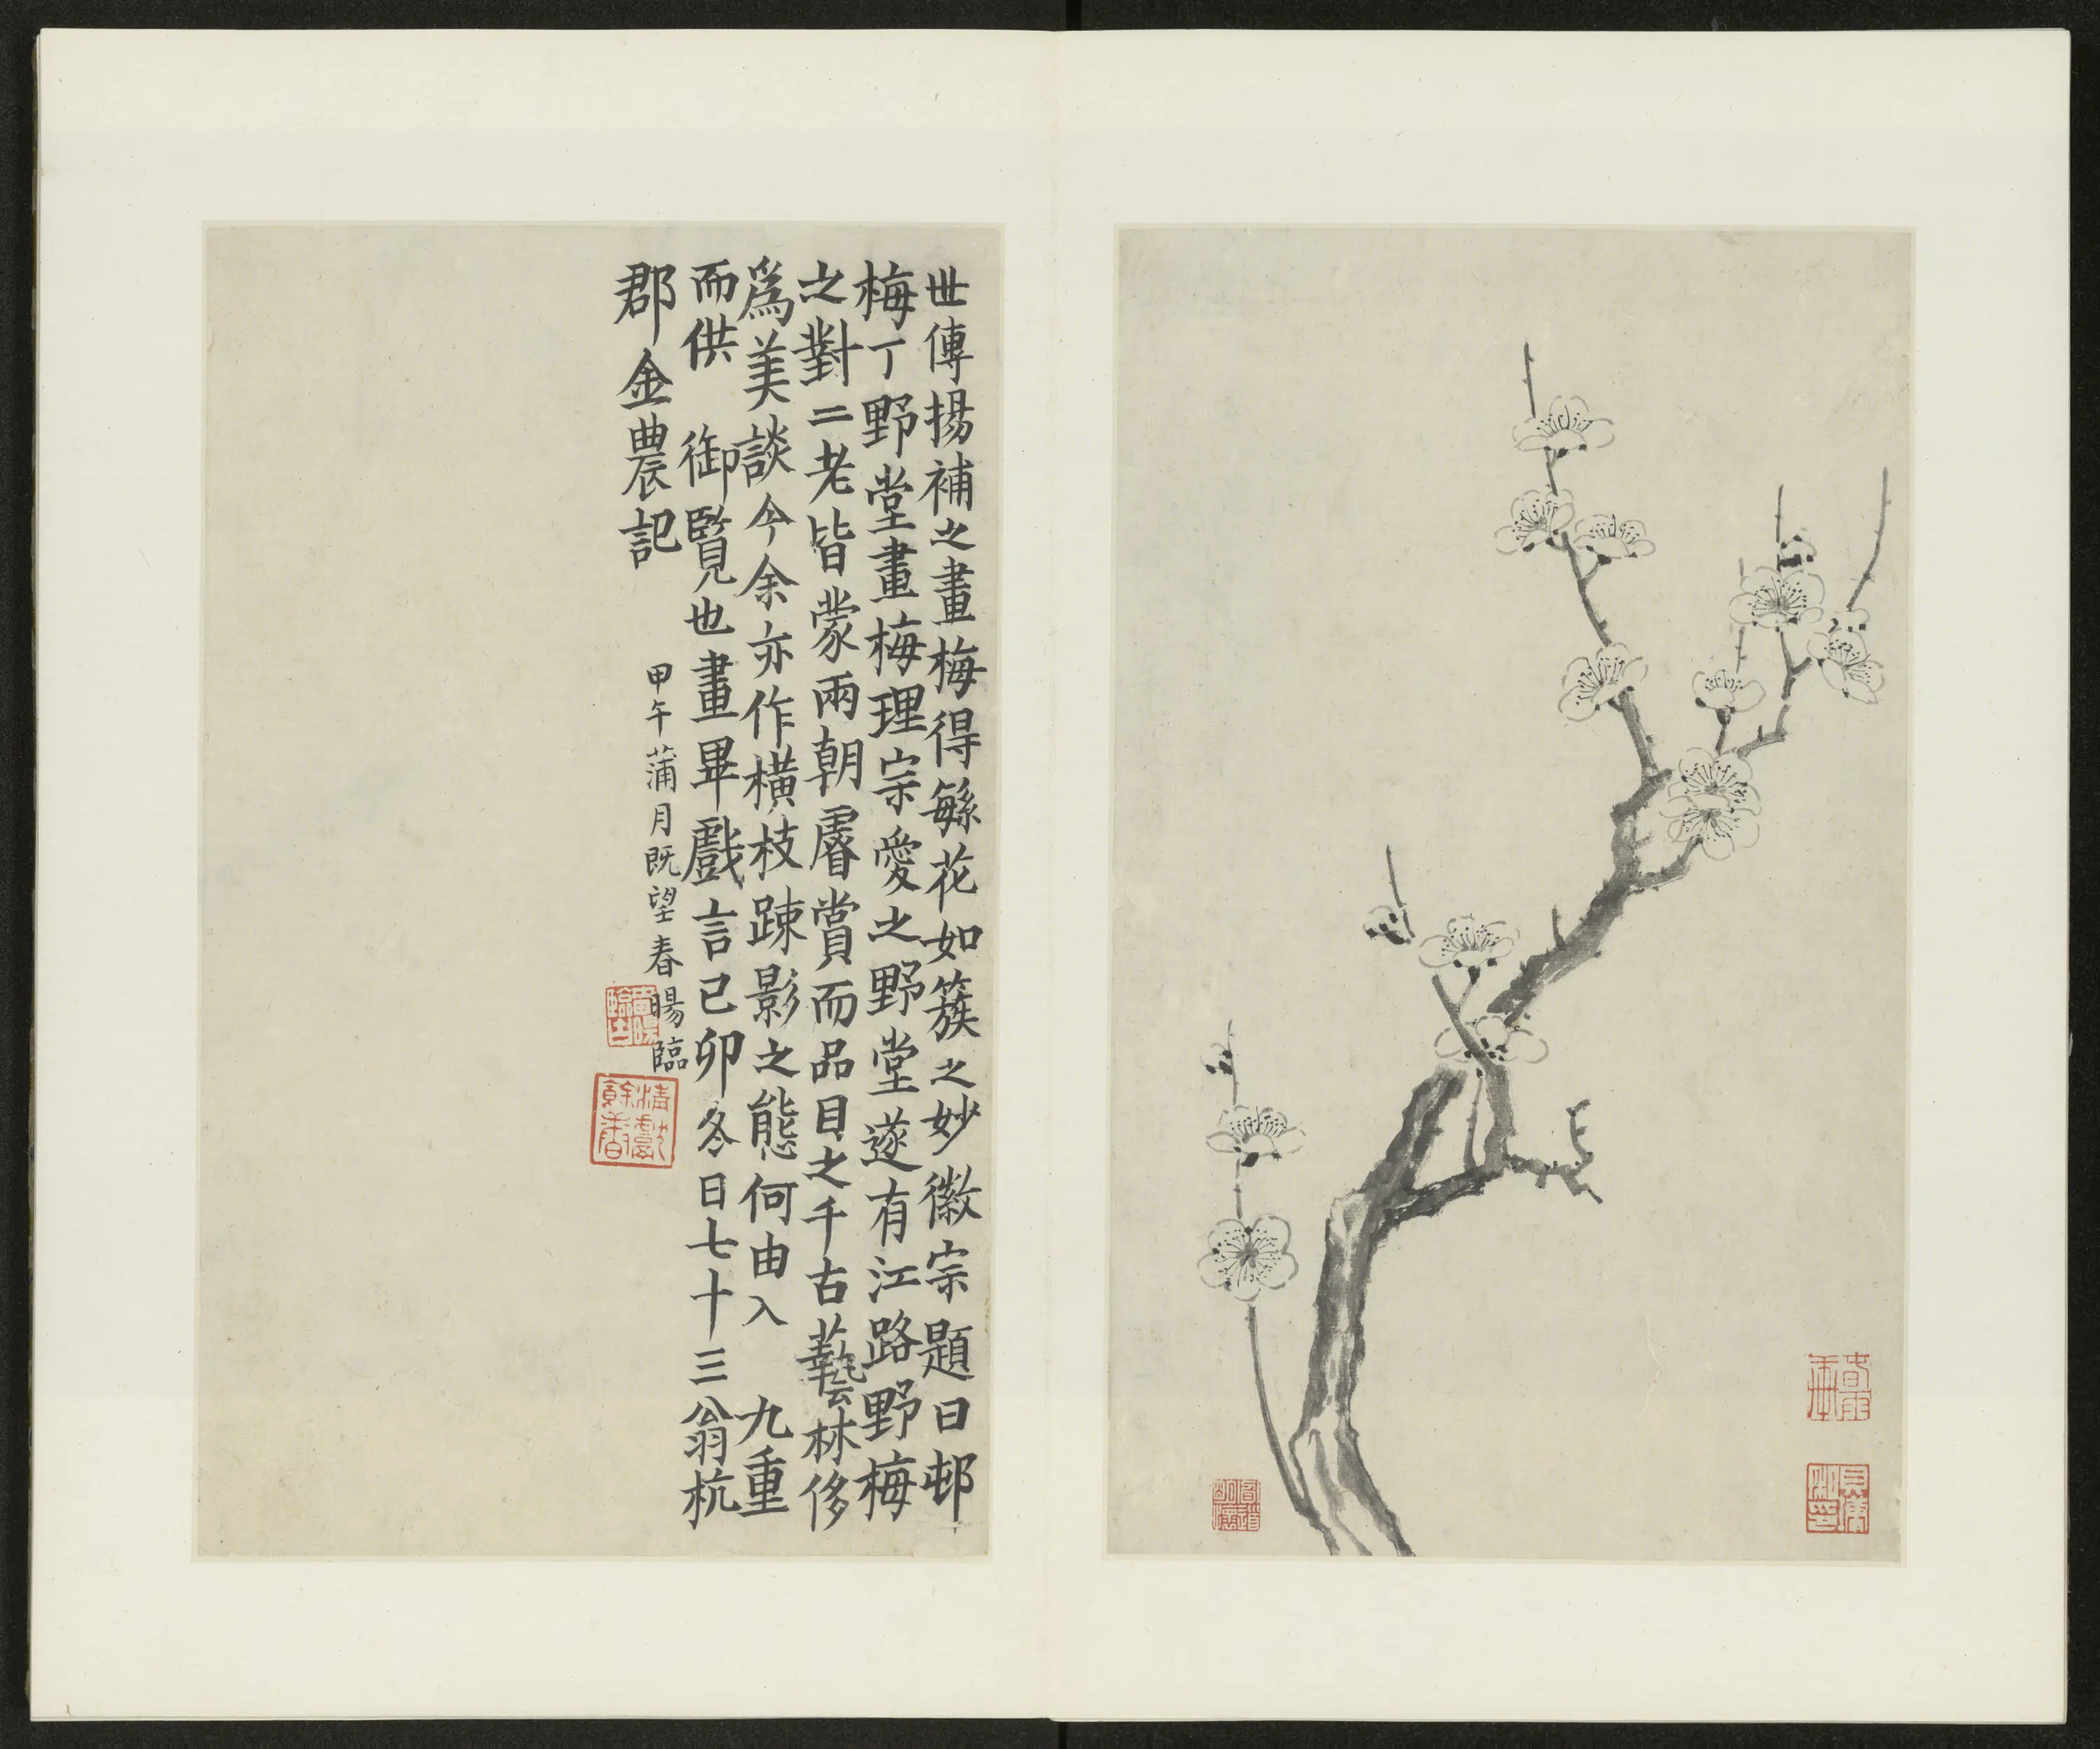 世傳揚補之畫梅得緐花如簇之妙徽宗題曰邨
梅丁野堂畫梅理宗愛之野堂遂有江路野梅
之對二老皆蒙兩朝睿賞而品目之千古藝林侈
爲美談今余亦作橫枝踈影之態何由入 九重
而供 御覽也畫畢戲言己卯冬日七十三翁杭
郡金農記
甲午蒲月既望春暘臨